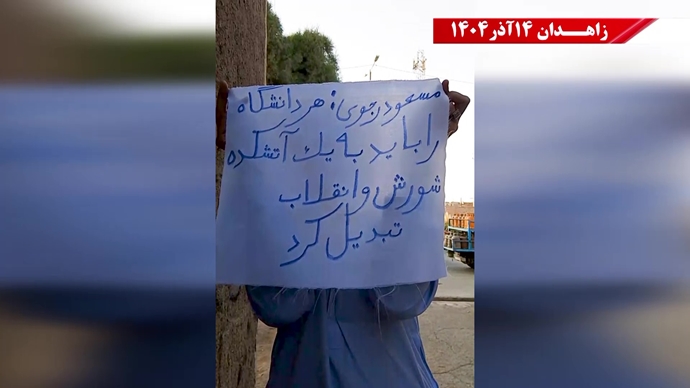 زاهدان ۱۴آذر۱۴۰۴
مسعود رجوی: هر دانشگاه
را باید به یك آتشكده
شورش و انقلاب
تبدیل كرد